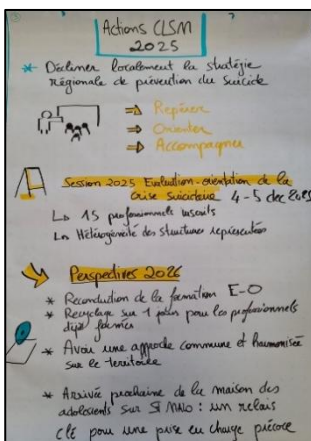 Actions CLSM
2025
* Décliner localement la stratégie
régionale de prévention du suicide
⇒ Repérer
⇒ Orienter
⇒ Accompagner
Session 2025 Evaluation-orientation de la
crise suicidaire 4-5 dec 2025
↳ 15 professionnels inscrits
↳ Hétérogénéité des structures représentées
Perspectives 2026
* Reconduction de la formation E-O
* Recyclage sur 1 jour pour les professionnels
déjà formés
* Avoir une approche commune et harmonisée
sur le territoire
* Arrivée prochaine de la maison des
adolescents sur St MALO : un relais
clé pour une prise en charge précoce